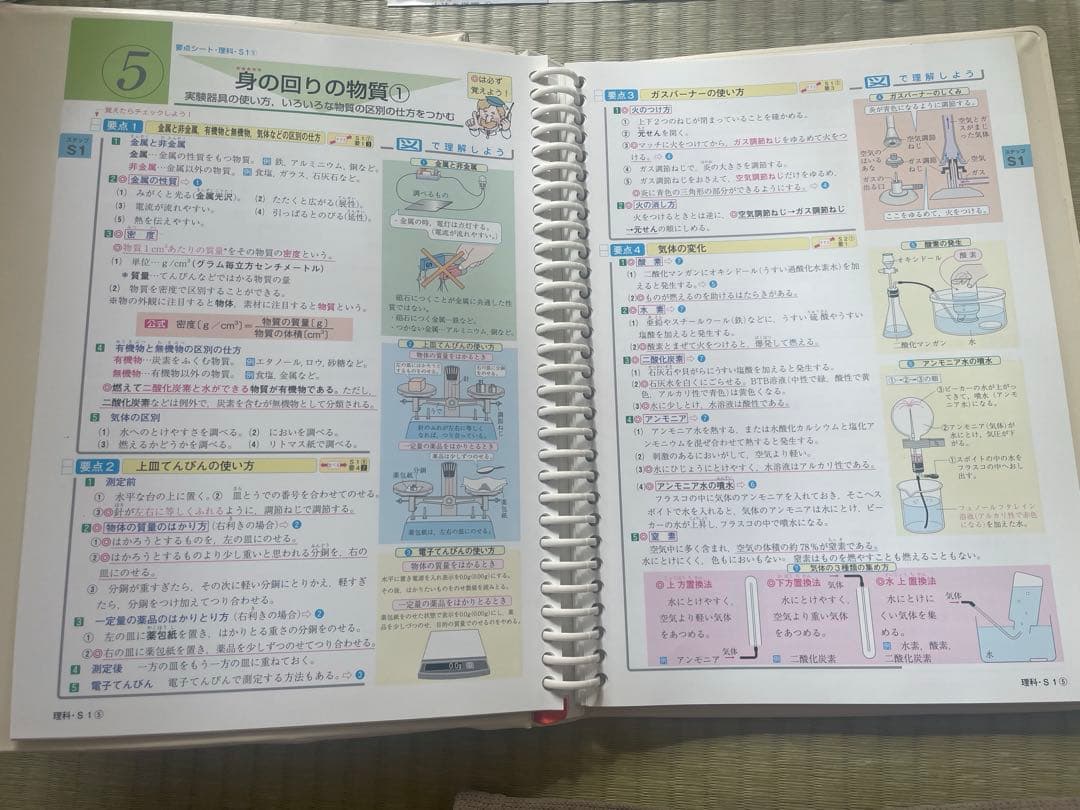 5
要点シート・理科・S1⑤
身の回りの物質①
実験器具の使い方、いろいろな物質の区別の仕方をつかむ
◎は必ず
覚えよう！
覚えたらチェックしよう！
ステップ
S1
要点1 金属と非金属、有機物と無機物、気体などの区別の仕方
1 金属と非金属
金属…金属の性質をもつ物質。例 鉄、アルミニウム、銅など。
非金属…金属以外の物質。例 食塩、ガラス、石灰石など。
2◎金属の性質⇨①
(1) みがくと光る(金属光沢)。 (2) たたくと広がる(展性)。
(3) 電流が流れやすい。 (4) 引っぱるとのびる(延性)。
(5) 熱を伝えやすい。
3◎密度
◎物質1cm³あたりの質量*をその物質の密度という。
(1) 単位…g/cm³(グラム毎立方センチメートル)
*質量…てんびんなどではかる物質の量
(2) 物質を密度で区別することができる。
※物の外観に注目すると物体、素材に注目すると物質という。
公式 密度〔g/cm³〕=物質の質量〔g〕/物質の体積〔cm³〕
4 有機物と無機物の区別の仕方
有機物…炭素をふくむ物質。例 エタノール、ロウ、砂糖など。
無機物…有機物以外の物質。例 食塩、金属など。
◎燃えて二酸化炭素と水ができる物質が有機物である。ただし、
二酸化炭素などは例外で、炭素を含むが無機物として分類される。
5 気体の区別
(1) 水へのとけやすさを調べる。 (2) においを調べる。
(3) 燃えるかどうかを調べる。 (4) リトマス紙で調べる。
要点2 上皿てんびんの使い方
1 測定前
(1) 水平な台の上に置く。 (2) 皿とうでの番号を合わせてのせる。
(3)◎針が左右に等しくふれるように、調節ねじで調節する。
2◎物体の質量のはかり方(右利きの場合)⇨②
(1)◎はかろうとするものを、左の皿にのせる。
(2)◎はかろうとするものより少し重いと思われる分銅を、右の
皿にのせる。
(3) 分銅が重すぎたら、その次に軽い分銅にとりかえ、軽すぎ
たら、分銅をつけ加えてつり合わせる。
3 一定量の薬品のはかりとり方(右利きの場合)⇨②
(1) 左の皿に薬包紙を置き、はかりとる重さの分銅をのせる。
(2)◎右の皿に薬包紙を置き、薬品を少しずつのせてつり合わせる。
4 測定後 一方の皿をもう一方の皿に重ねておく。
5 電子てんびん 電子てんびんで測定する方法もある。⇨③
理科・S1⑤
図で理解しよう
① 金属と非金属
調べるもの
・金属の時、電灯は点灯する。
(電流が流れやすい。)
磁石につくことが金属に共通した性
質ではない。
・磁石につく金属…鉄など。
・つかない金属…アルミニウム、銅など。
② 上皿てんびんの使い方
物体の質量をはかるとき
針
うで
調節ねじ
針のふれが左右に等しく
なれば、つり合っている。
一定量の薬品をはかりとるとき
薬品は少しずつのせる。
薬包紙
分銅
薬包紙
薬包紙は、左右の皿にのせる。
③ 電子てんびんの使い方
物体の質量をはかるとき
一定量の薬品をはかりとるとき
0.0g
要点3 ガスバーナーの使い方
1◎火のつけ方
(1) 上下2つのねじが閉まっていることを確かめる。
(2) 元せんを開く。
(3)◎マッチに火をつけてから、ガス調節ねじをゆるめて火をつ
ける。⇨④
(4) ガス調節ねじで、炎の大きさを調節する。
(5) ガス調節ねじをおさえて、空気調節ねじだけをゆるめ、
◎炎に青色の三角形の部分ができるようにする。⇨④
2◎火の消し方
火をつけるときとは逆に、◎空気調節ねじ→ガス調節ねじ
→元せんの順にしめる。
要点4 気体の変化
1◎酸素⇨⑦
(1) 二酸化マンガンにオキシドール(うすい過酸化水素水)を加
えると発生する。⇨⑤
(2)◎ものが燃えるのを助けるはたらきがある。
2◎水素⇨⑦
(1) 亜鉛やスチールウール(鉄)などに、うすい硫酸やうすい
塩酸を加えると発生する。
(2)◎酸素とまぜて火をつけると、爆発して燃える。
3◎二酸化炭素⇨⑦
(1) 石灰石や貝がらにうすい塩酸を加えると発生する。
(2)◎石灰水を白くにごらせる。BTB溶液(中性で緑、酸性で黄
色、アルカリ性で青色)は黄色くなる。
(3)◎水に少しとけ、水溶液は酸性である。
4◎アンモニア⇨⑦
(1) アンモニア水を熱する、または水酸化カルシウムと塩化ア
ンモニウムを混ぜ合わせて熱すると発生する。
(2) 刺激のあるにおいがして、空気より軽い。
(3)◎水にひじょうにとけやすく、水溶液はアルカリ性である。
(4)◎アンモニア水の噴水⇨⑥
フラスコの中に気体のアンモニアを入れておき、そこへス
ポイトで水を入れると、気体のアンモニアは水にとけ、ビー
カーの水が上昇し、フラスコの中で噴水になる。
5◎窒素
空気中に多く含まれ、空気の体積の約78%が窒素である。
水にとけにくく、色もにおいもない。窒素はものを燃やすことも燃えることもない。
⑦ 気体の3種類の集め方
◎上方置換法
水にとけやすく、
空気より軽い気体
をあつめる。
例 アンモニア
気体
◎下方置換法
水にとけやすく、
空気より重い気体
をあつめる。
例 二酸化炭素
気体
◎水上置換法
水にとけに
くい気体を集
める。
例 水素、酸素、
二酸化炭素
気体
水
図で理解しよう
④ ガスバーナーのしくみ
炎が青色になるように調節する。
空気調節
ねじ
ガス調節
ねじ
ガスの
出る口
空気とガスがまじった気体
空気
ガス
ここをゆるめて、火をつける。
ステップ
S1
⑤ 酸素の発生
オキシドール
酸素
二酸化マンガン
水
⑥ アンモニア水の噴水
①→②→③の順
③ビーカーの水が上がっ
てきて、噴水(アンモニ
ア水)になる。
②アンモニア(気体)が
水にとけ、気圧が下
がる。
①スポイトの中の水を
フラスコの中へおし
出す。
フェノールフタレイン
溶液(アルカリ性で赤色
になる)を加えた水。
理科・S1⑤